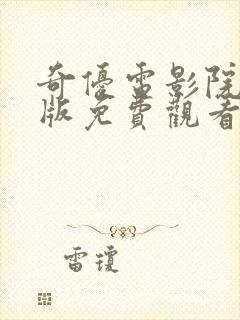 奇優電影院
版免費觀看
雷瓊